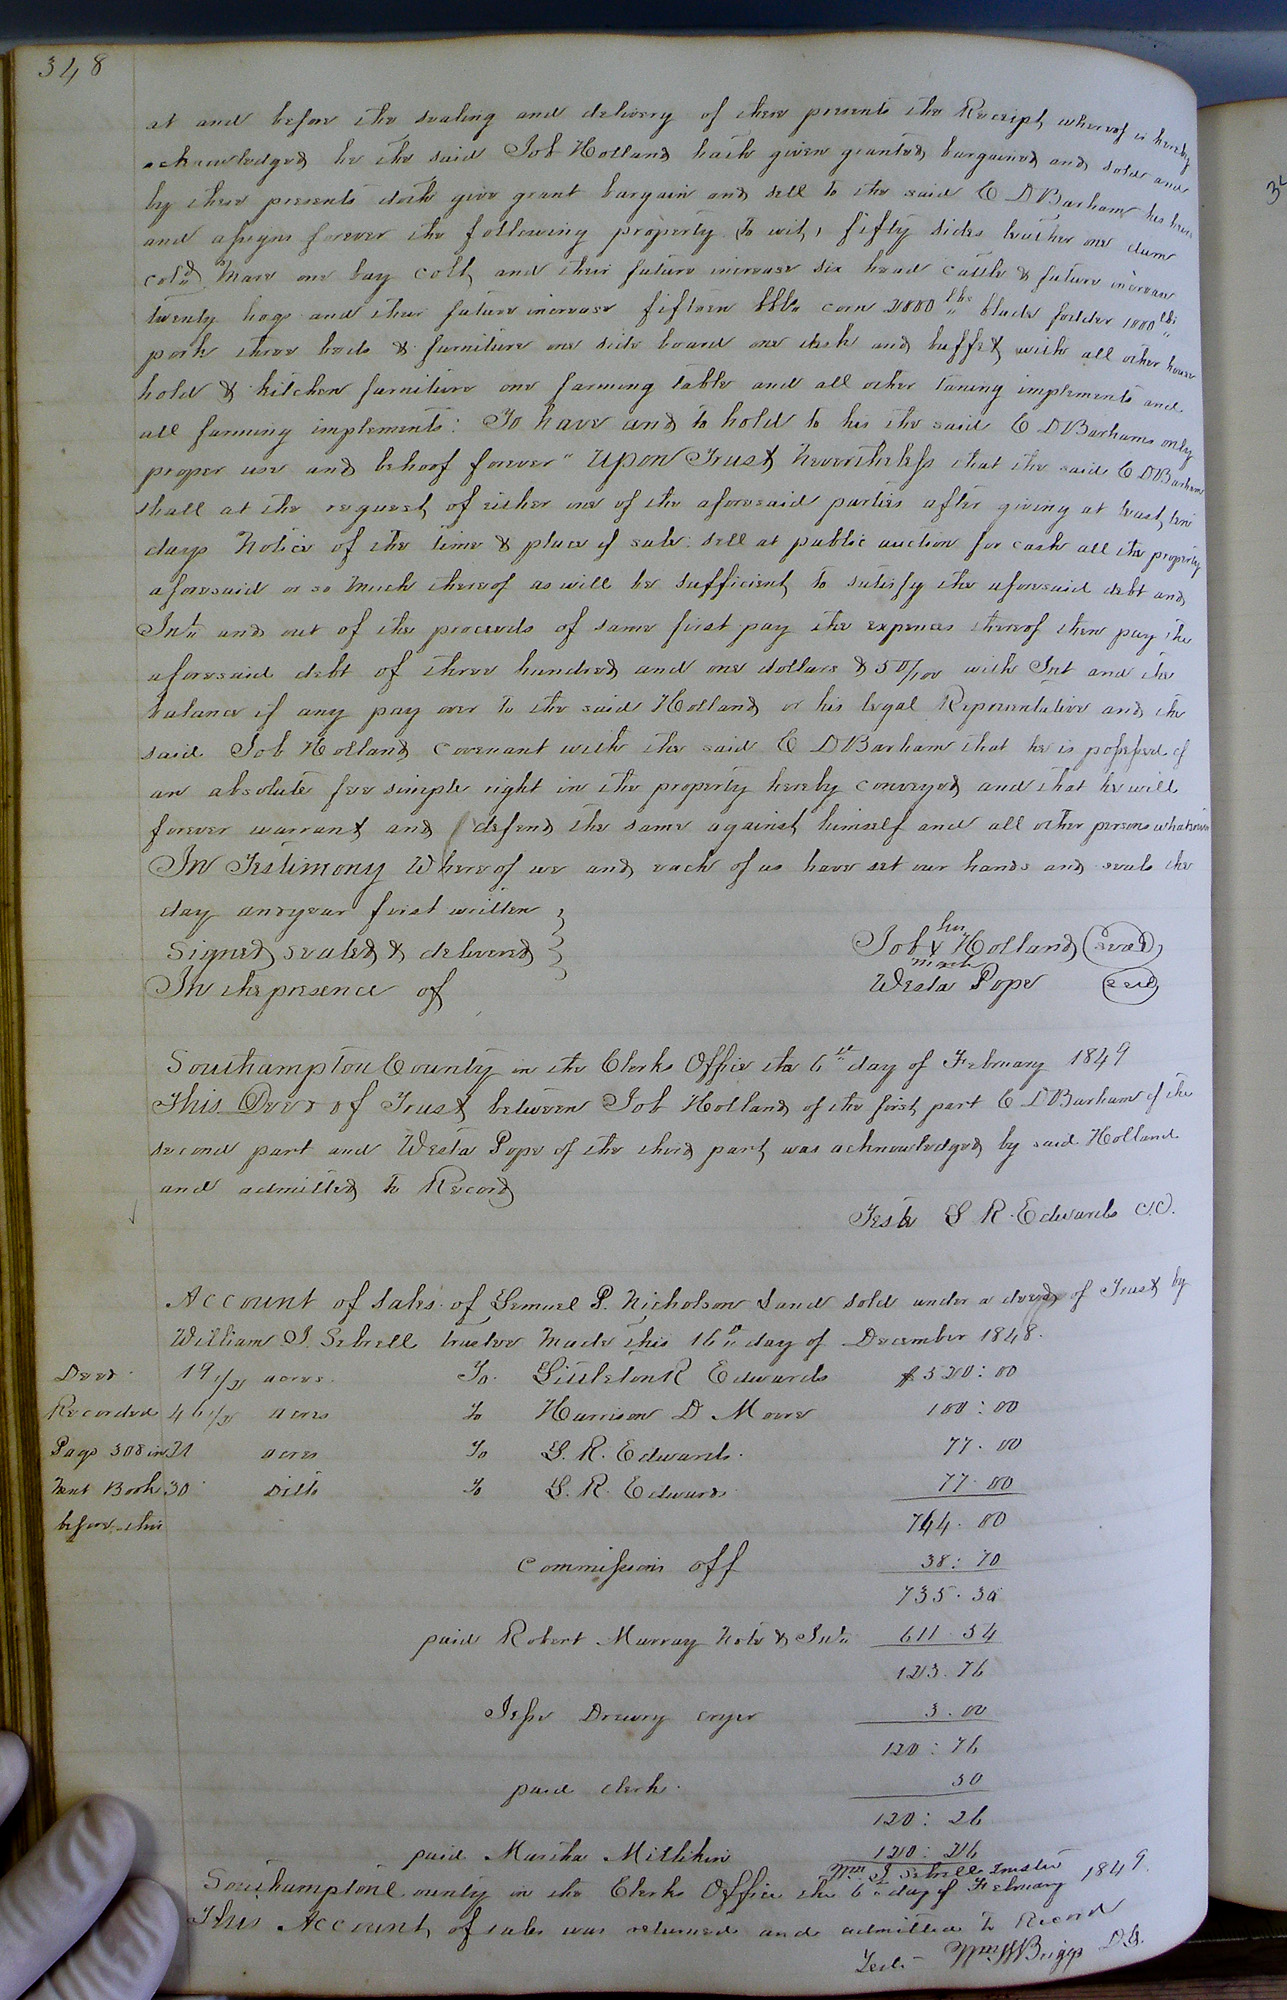 348
at and before the sealing and delivery of these presents the Receipt whereof is hereby
acknowledged he the said Job Holland hath given granted bargained and sold and
by these presents doth give grant bargain and sell to the said E D Barham his heirs
and assigns forever the following property to wit, fifty sides leather one dum
cold Mare one bay colt and their future increase six head cattle & future increase
twenty hogs and their future increase fifteen bbls corn 2000 lbs blade fodder 1000 lbs
pork three beds & furniture one side board one desk and buffet with all other house
hold & kitchen furniture one farming table and all other taning implements and
all farming implements: To have and to hold to his the said E D Barhams only
proper use and behoof forever" Upon Trust Nevertheless that the said E D Barham
shall at the request of either one of the aforesaid parties after giving at least ten
days Notice of the time & place of sale sell at public auction for cash all the property
aforesaid or so much thereof as will be sufficient to satisfy the aforesaid debt and
Int and out of the proceeds of same first pay the expences thereof then pay the
aforesaid debt of three hundred and one dollars & 50/100 with Int and the
balance if any pay over to the said Holland or his legal Representative and the
said Job Holland covenant with the said E D Barham that he is possessed of
an absolute fee simple right in the property hereby conveyed and that he will
forever warrant and defend the same against himself and all other persons whatsoever
In Testimony Whereof we and each of us have set our hands and seals the
day and year first written
Signed sealed & delivered
In the presence of
his
Job X Holland (seal)
mark
Westa Pope (seal)
Southampton County in the Clerks Office the 6th day of February 1849
This Deed of Trust between Job Holland of the first part E D Barham of the
second part and Westa Pope of the third part was acknowledged by said Holland
and admitted to Record
Teste L R. Edwards C.C.
Account of sales of Lemuel P. Nicholson Land sold under a deed of Trust by
William J. Sebrell trustee Made this 16th day of December 1848.
Deed 19 1/2 acres. To. Littleton R Edwards $520:00
Recorded 46 1/2 acres To Harrison D Moore 100:00
Page 308 in 21 acres To L. R. Edwards. 77.00
next Book 30 ditto To L. R. Edwards 77.00
before this 744.00
commissions off 38:70
735.30
paid Robert Murray Note & Int 611.54
123.76
Jesse Drewry cryer 3.00
120:76
paid clerk. 50
120:26
paid Martha Millikin 120:26
Wm J Sebrell Trustee
Southampton County in the Clerks Office the 6th day of February 1849.
This Account of sales was returned and admitted to Record
Teste Wm W Briggs D.C.